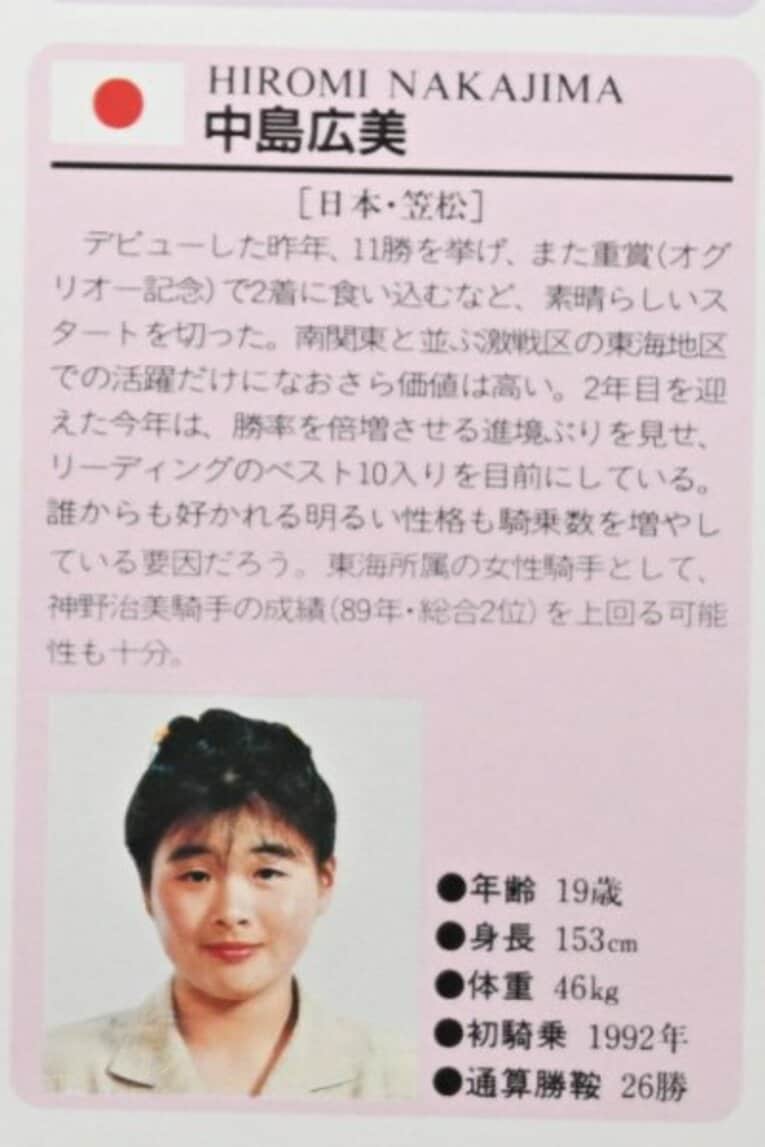 HIROMI NAKAJIMA
中島広美
［日本・笠松］
デビューした昨年、11勝を挙げ、また重賞（オグ
リオー記念）で2着に食い込むなど、素晴らしいス
タートを切った。南関東と並ぶ激戦区の東海地区
での活躍だけになおさら価値は高い。2年目を迎
えた今年は、勝率を倍増させる進境ぶりを見せ、
リーディングのベスト10入りを目前にしている。
誰からも好かれる明るい性格も騎乗数を増やし
ている要因だろう。東海所属の女性騎手として、
神野治美騎手の成績（89年・総合2位）を上回る可能
性も十分。
●年齢 19歳
●身長 153cm
●体重 46kg
●初騎乗 1992年
●通算勝鞍 26勝